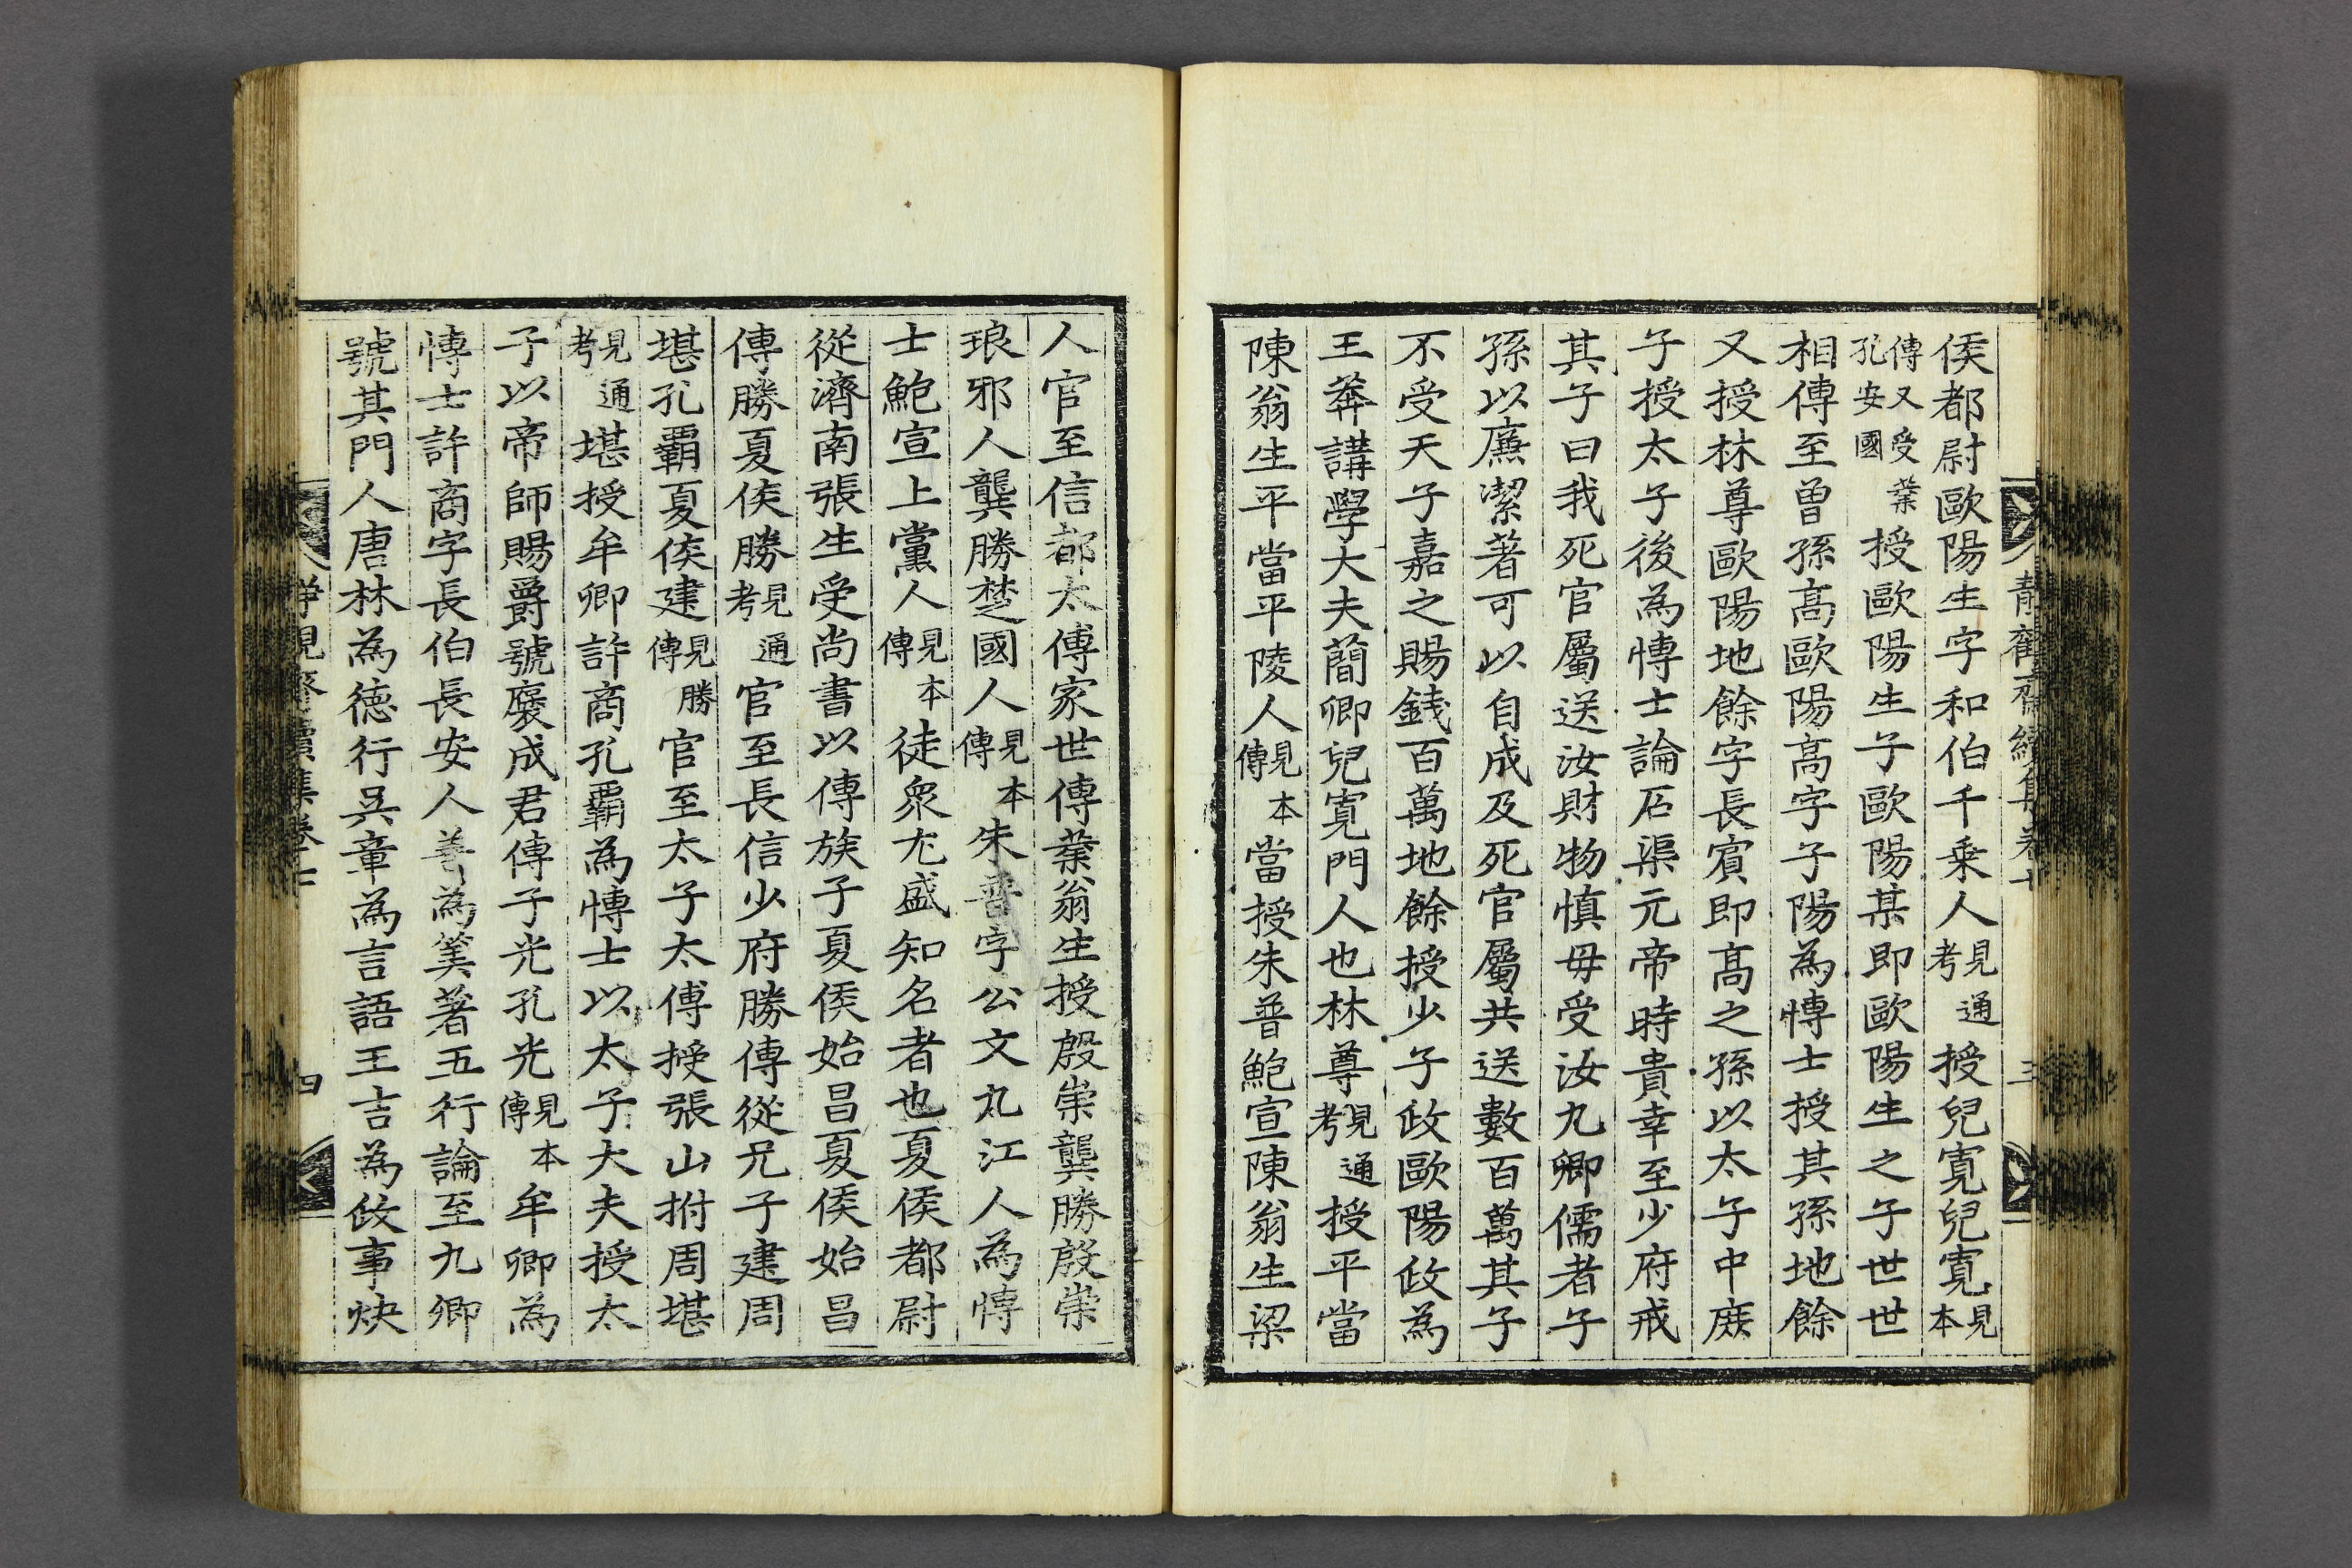 靜觀齋續集卷七 三
侯都尉歐陽生字和伯千乗人見通考授兒寛兒寛見本
傳又受業孔安國授歐陽生子歐陽某即歐陽生之子世世
相傳至曾孫髙歐陽髙字子陽為博士授其孫地餘
又授林尊歐陽地餘字長賓即髙之孫以太子中庶
子授太子後為博士論石渠元帝時貴幸至少府戒
其子曰我死官屬送汝財物慎毋受汝九卿儒者子
孫以廉潔著可以自成及死官屬共送數百萬其子
不受天子嘉之賜錢百萬地餘授少子政歐陽政為
王莽講學大夫蕳卿兒寛門人也林尊見通考授平當
陳翁生平當平陵人見本傳當授朱普鮑宣陳翁生梁
人官至信都太傅家世傳業翁生授殷崇龔勝殷崇
琅邪人龔勝楚國人見本傳朱普字公文九江人為博
士鮑宣上黨人見本傳徒衆尤盛知名者也夏侯都尉
從濟南張生受尚書以傳族子夏侯始昌夏侯始昌
傳勝夏侯勝見通考官至長信少府勝傳從兄子建周
堪孔霸夏侯建見勝傳官至太子太傅授張山拊周堪
見通考堪授牟卿許商孔霸為博士以太子大夫授太
子以帝師賜爵號褒成君傳子光孔光見本傳牟卿為
博士許商字長伯長安人善為筭著五行論至九卿
號其門人唐林為德行吳章為言語王吉為政事炔
靜觀齋續集卷七 四